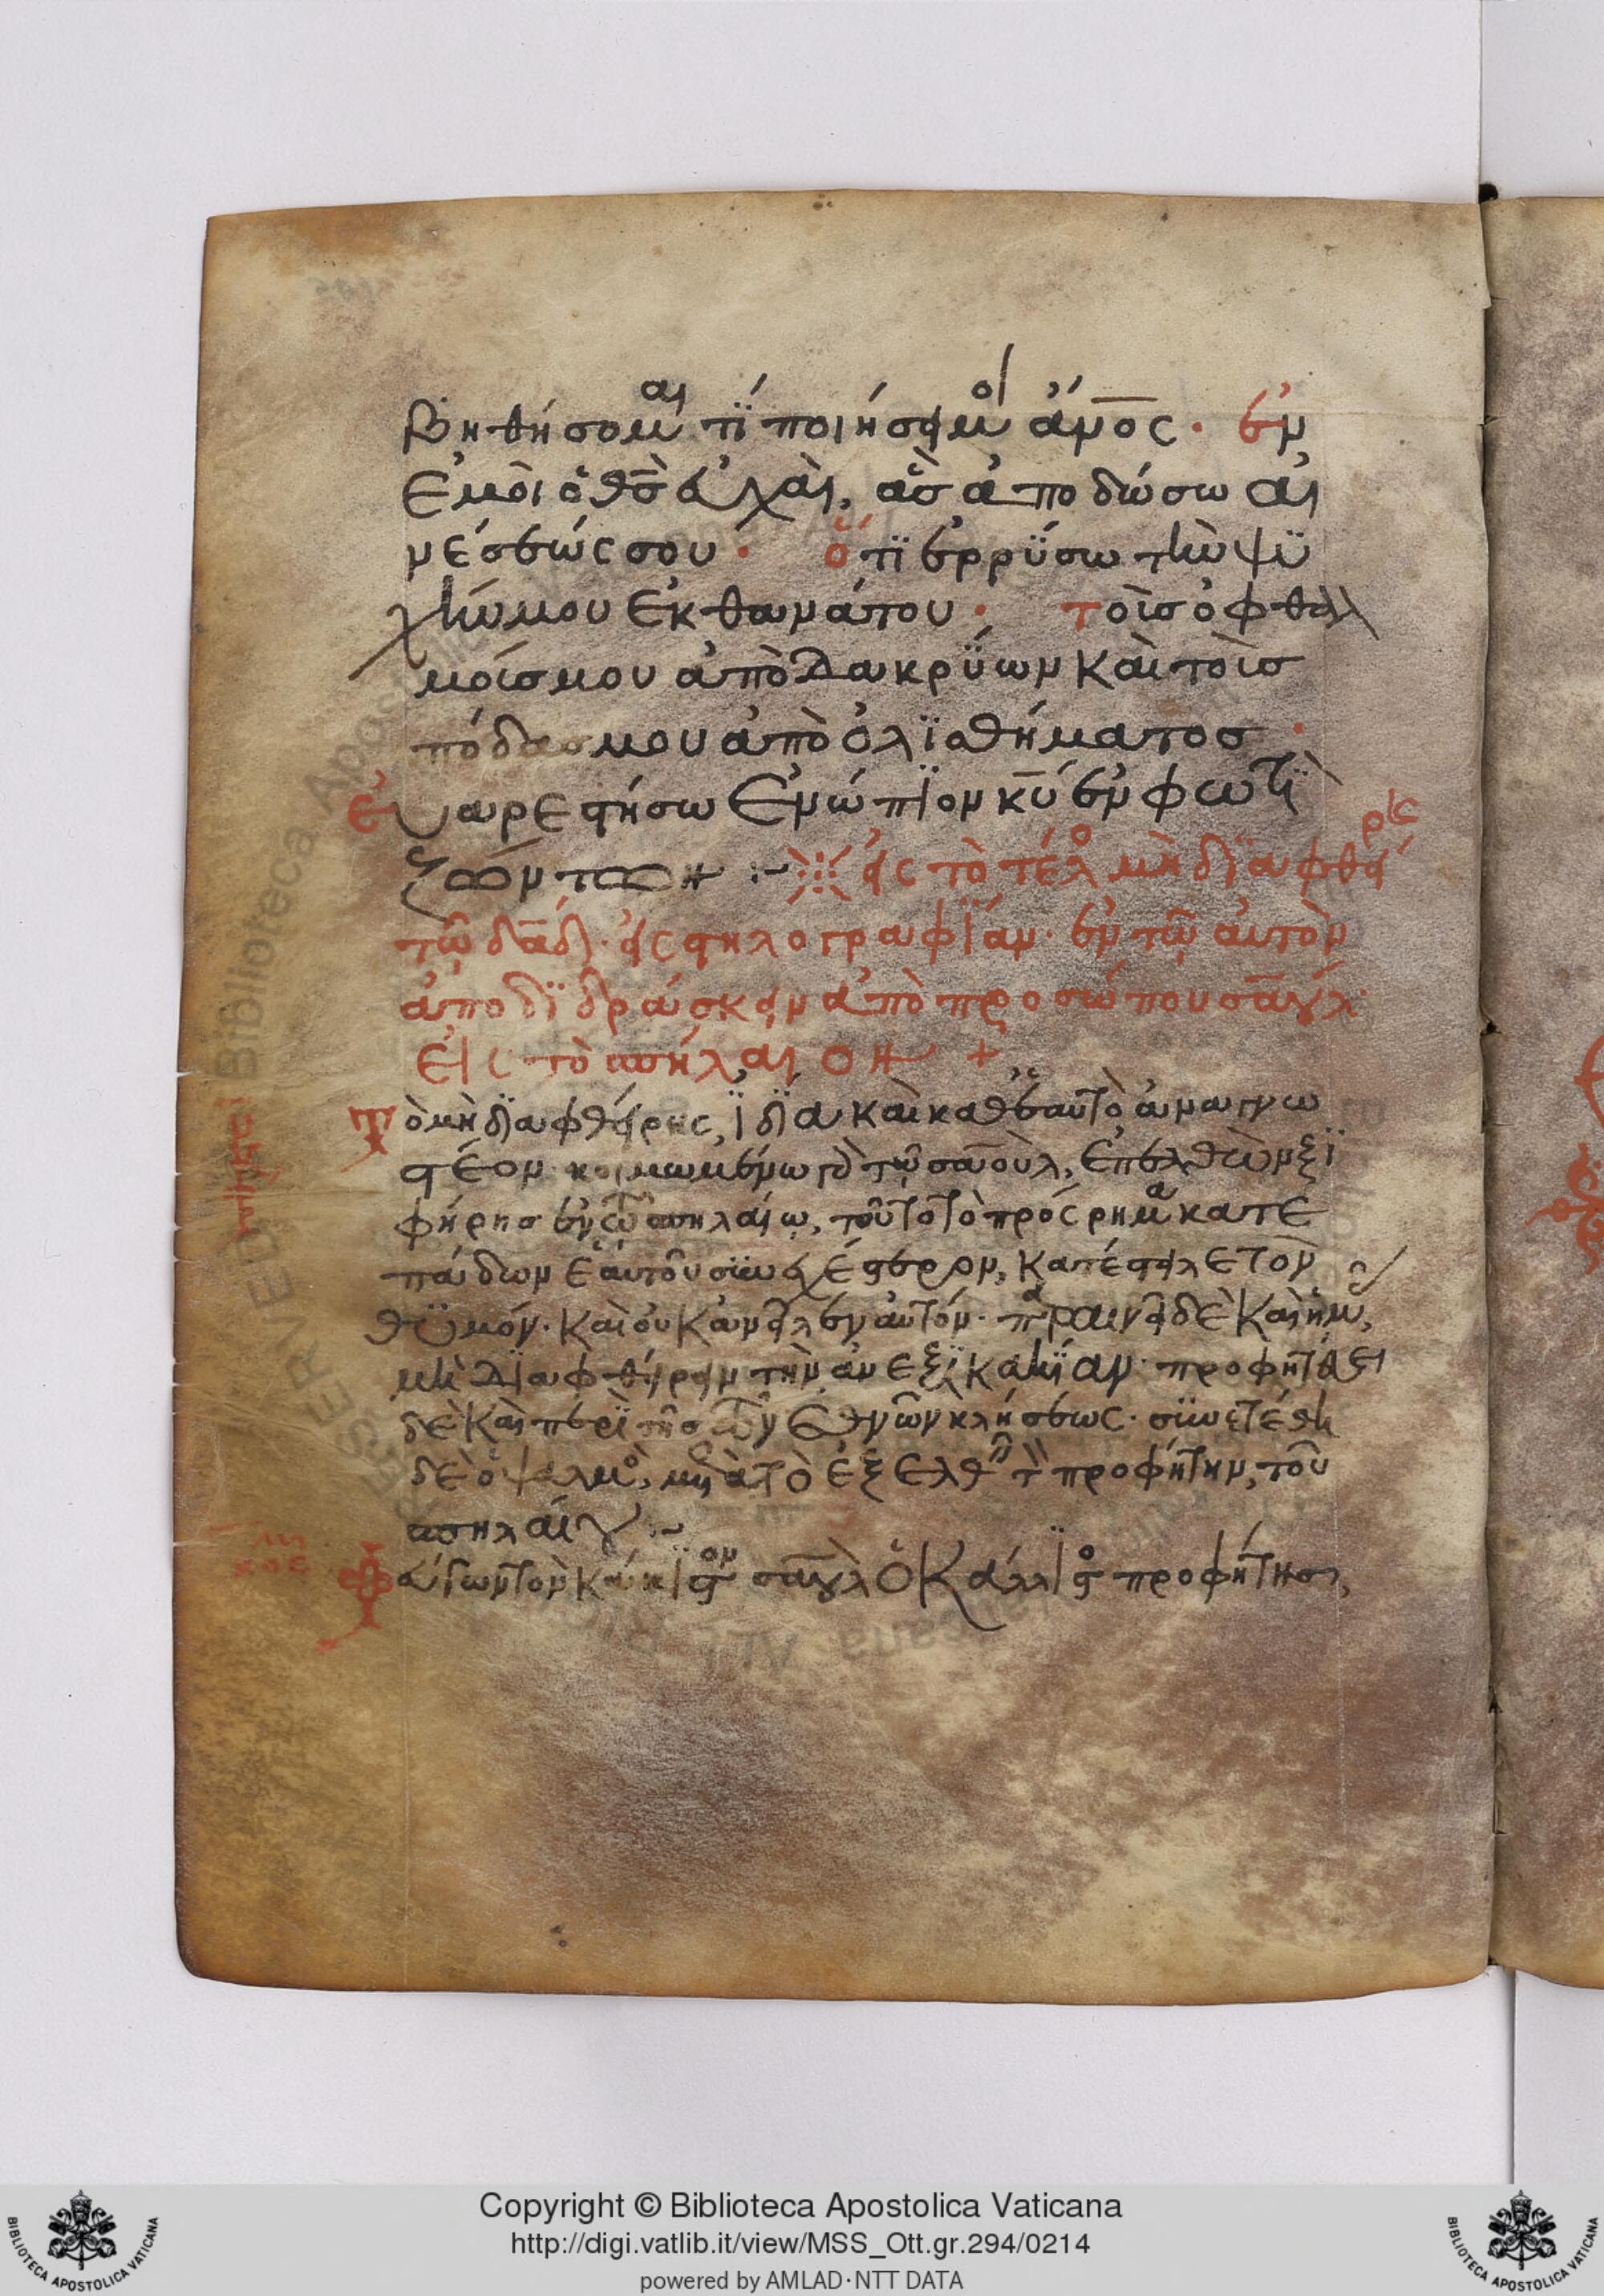 βηθήσομαι τί ποιήσει μοι ἄνος· ἐν
ἐμοὶ ὁ θσ εὐχαὶ, ἃσ ἀποδώσω αἰ
νέσεώς σου· ὅτι ἐρρύσω τὴν ψυ
χήν μου ἐκ θανάτου· τοὺσ ὀφθαλ
μούσ μου ἀπὸ δακρύων καὶ τοὺσ
πόδασ μου ἀπὸ ὀλισθήματοσ·
εὐαρεστήσω ἐνώπιον κυ ἐν φωτὶ
ζώντων :~ εἰς τὸ τέλος μὴ διαφθεί
τῶ δαδ· εἰς στηλογραφίαν· ἐν τῶ αὐτὸν
ἀποδιδράσκειν ἀπὸ προσώπου σαοὺλ·
εἰς τὸ σπήλαιον +
Τὸ μὴ διαφθείρης, ἰδία καὶ καθ' ἑαυτὸ ἀναγνω
στέον κοιμωμένω γὰρ τῶ σαοὺλ, ἐπελθὼν ξι
φήρησ ἐν τῶ σπηλαίω, τοῦτο τὸ πρόσρημα κατε
πάδων ἑαυτοῦ συνέστερον, κατέστελε τὸν
θυμόν· καὶ οὐκ ἀνεῖλεν αὐτόν· παραινεῖ δὲ καὶ ἡμῖν,
μὴ διαφθείρειν τὴν ἀνεξικακίαν· προφητεύει
δὲ καὶ περὶ τῆσ τῶν ἐθνῶν κλήσεως· συνετέθη
δὲ ὁ ψαλμὸς, μετὰ τὸ ἐξελθεῖν τὸν προφήτην, τοῦ
σπηλαίου :~
Φεύγων τὸν κάκιστον σαοὺλ ὁ κάλλιστος προφήτησ,
Copyright © Biblioteca Apostolica Vaticana
http://digi.vatlib.it/view/MSS_Ott.gr.294/0214
powered by AMLAD·NTT DATA
BIBLIOTECA APOSTOLICA VATICANA
BIBLIOTECA APOSTOLICA VATICANA